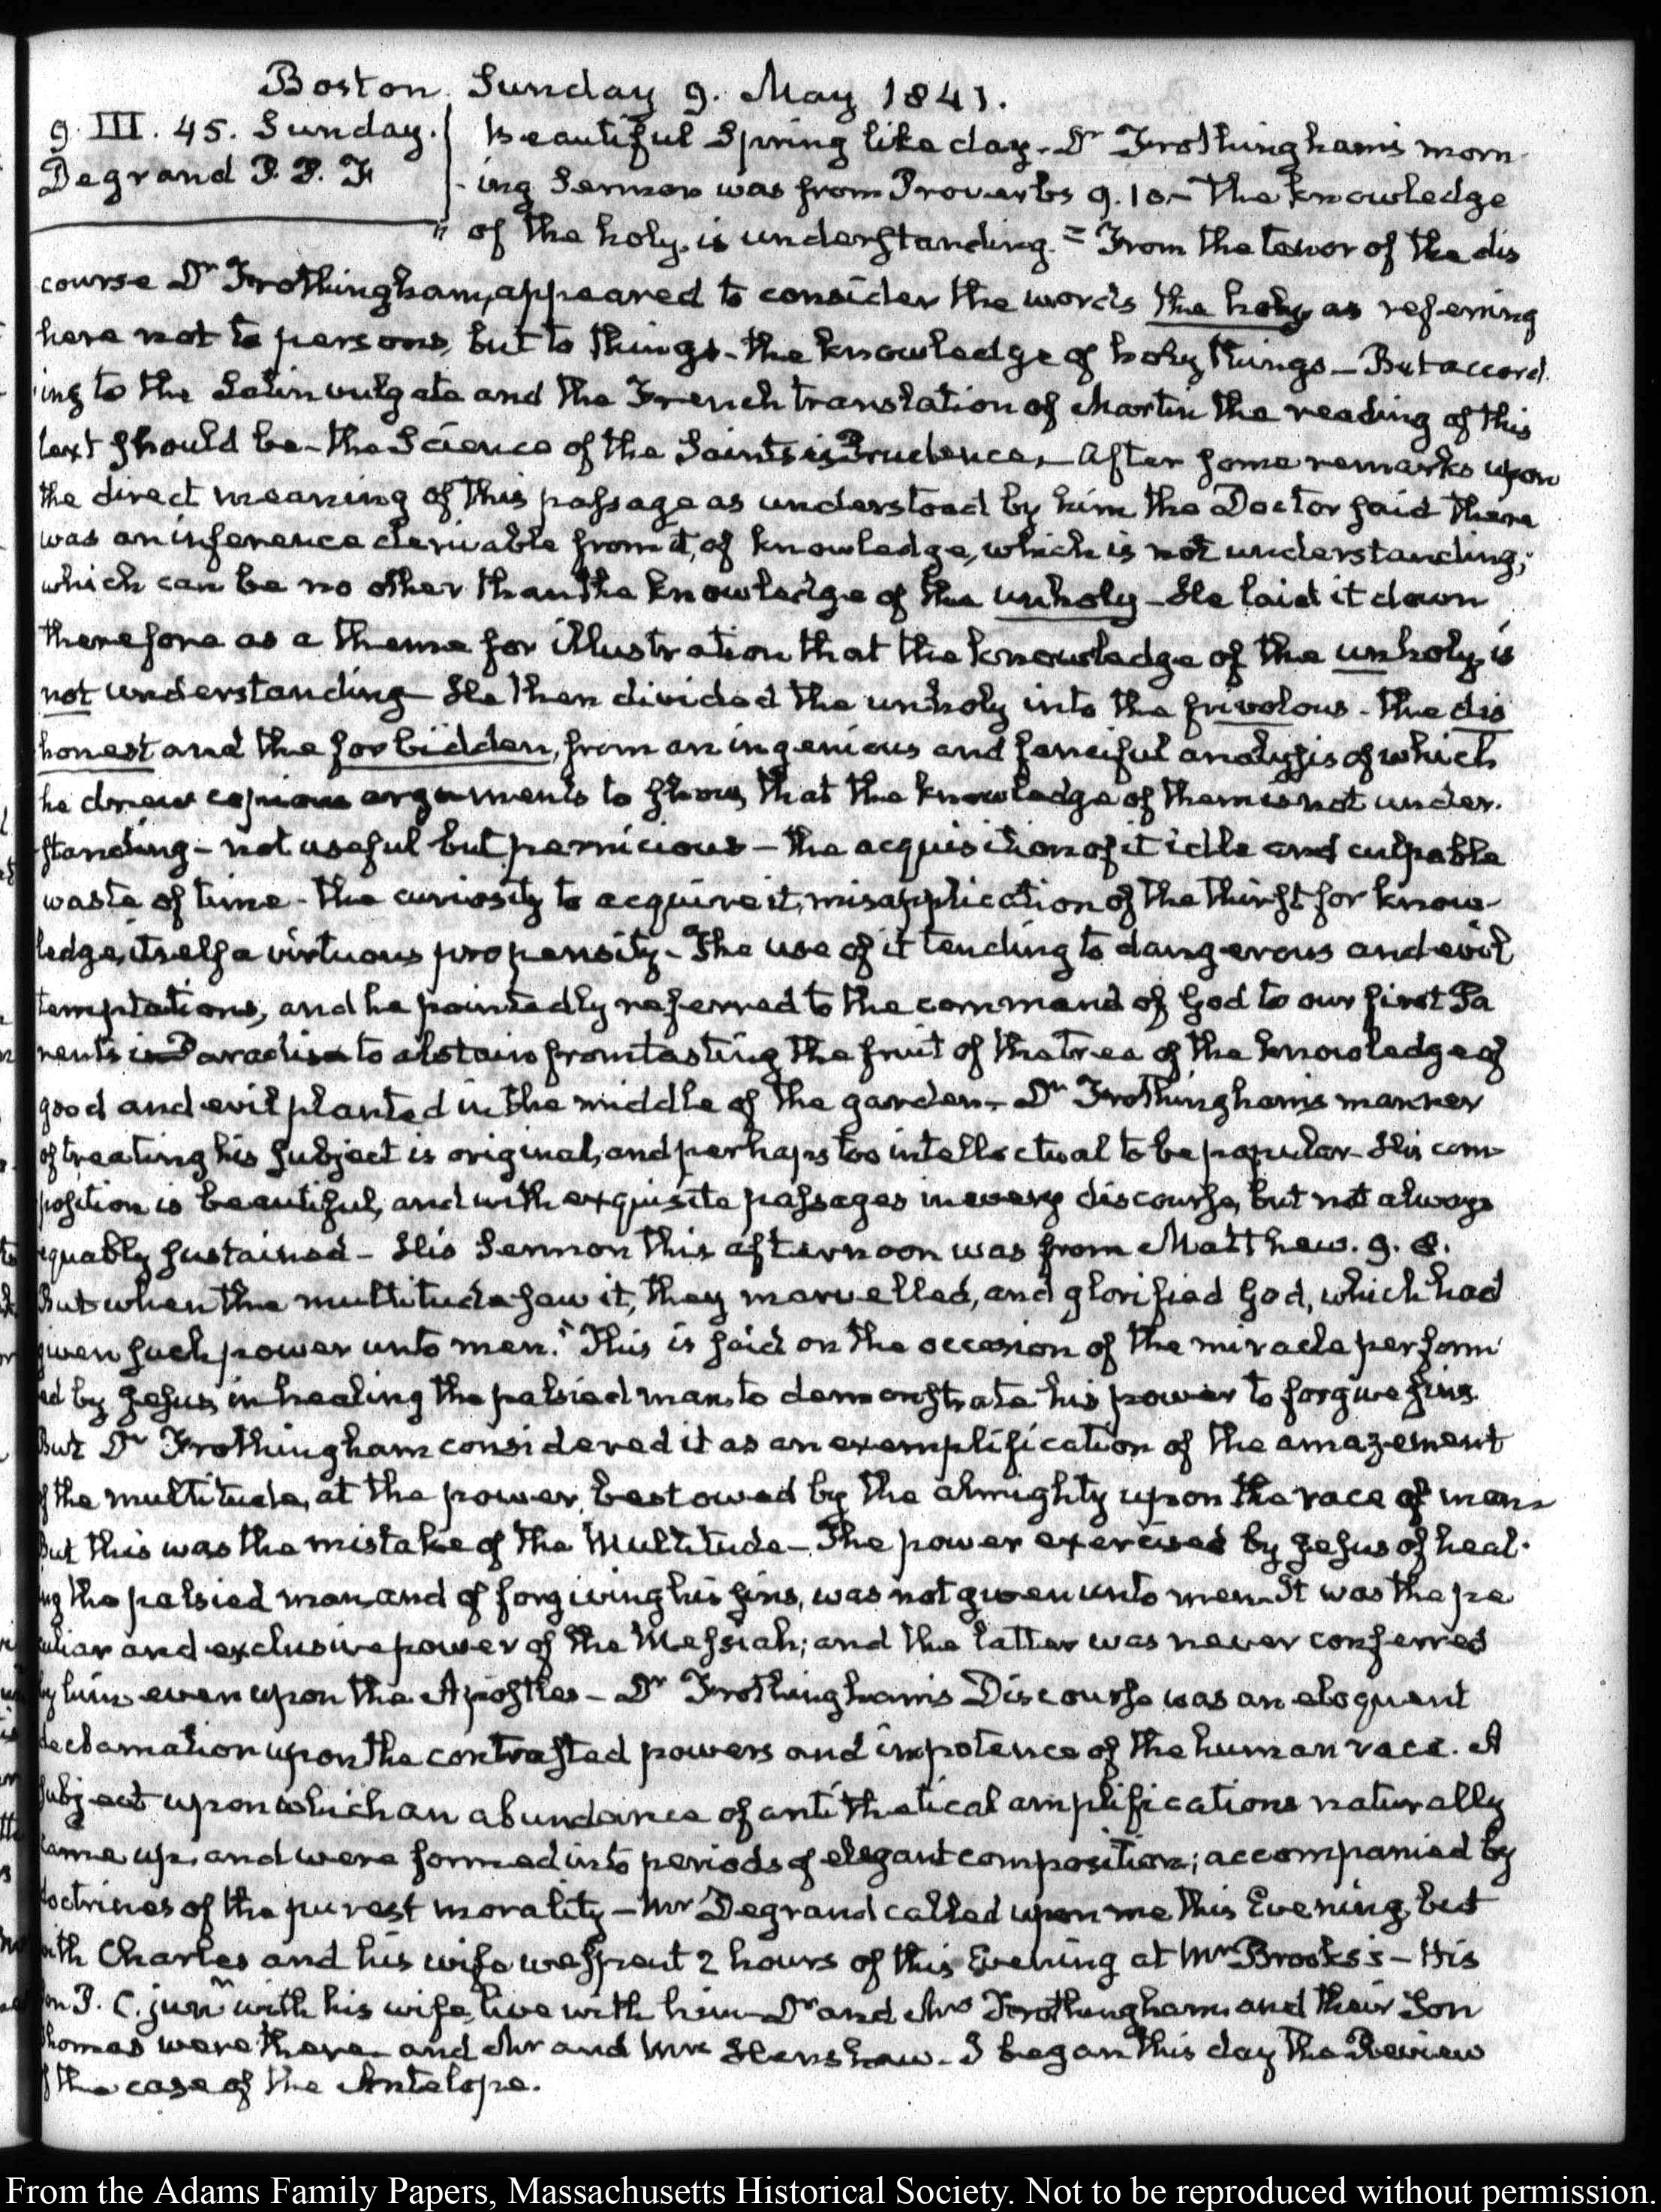 Boston Sunday 9. May 1841.
9. III. 45. Sunday.
Degrand P. P. F.
Beautiful Spring like day. Dr Frothingham's morn-
ing Sermon was from Proverbs 9.10 - The knowledge
of the holy, is understanding. = From the tenor of the dis
course Dr Frothingham, appeared to consider the words the holy as referring
here not to persons, but to things - the knowledge of holy things - But accord.
ing to the Latin vulgate and the French translation of Martin the reading of this
text should be - the Science of the Saints is Prudence. After some remarks upon
the direct meaning of this passage as understood by him the Doctor said there
was an inference derivable from it, of knowledge, which is not understanding;
which can be no other than the knowledge of the unholy - He laid it down
therefore as a theme for illustration that the knowledge of the unholy, is
not understanding - He then divided the unholy into the frivolous - the dis
honest and the forbidden, from an ingenious and fanciful analysis of which
he drew copious arguments to show, that the knowledge of them is not under.
standing - not useful but pernicious - the acquisition of it idle and culpable
waste of time - the curiosity to acquire it, misapplication of the thirst for know-
ledge, itself a virtuous propensity - The use of it tending to dangerous and evil
temptations, and he pointedly referred to the command of God to our first Pa
rents in Paradise to abstain from tasting the fruit of the tree of the knowledge of
good and evil planted in the middle of the garden - Dr Frothingham's manner
of treating his subject is original, and perhaps too intellectual to be popular - His com-
position is beautiful, and with exquisite passages in every discourse, but not always
equably sustained - His Sermon this afternoon was from Matthew. 9. 8.
But when the multitude saw it, they marvelled, and glorified God, which had
given such power unto men." This is said on the occasion of the miracle perform
ed by Jesus, in healing the palsied man, to demonstrate his power to forgive sins.
But Dr Frothingham considered it as an exemplification of the amazement
of the multitude, at the power, bestowed by the almighty upon the race of man -
But this was the mistake of the Multitude - The power exercised by Jesus of heal.
ing the palsied man, and of forgiving his sins, was not given unto men - It was the pe
culiar and exclusive power of the Messiah; and the latter was never conferred
by him even upon the Apostles - Dr Frothingham's Discourse was an eloquent
declamation upon the contrasted powers and impotence of the human race. A
subject upon which an abundance of antithetical amplifications naturally
came up, and were formed into periods of elegant composition; accompanied by
doctrines of the purest morality - Mr Degrand called upon me this Evening, but
with Charles and his wife we spent 2 hours of this Evening at Mr Brooks's - His
son P. C. junr with his wife, live with him - Dr and Mrs Frothingham and their Son
Thomas were there and Mr and Mrs Henshaw. I began this day the Review
of the case of the Antelope.
From the Adams Family Papers, Massachusetts Historical Society. Not to be reproduced without permission.